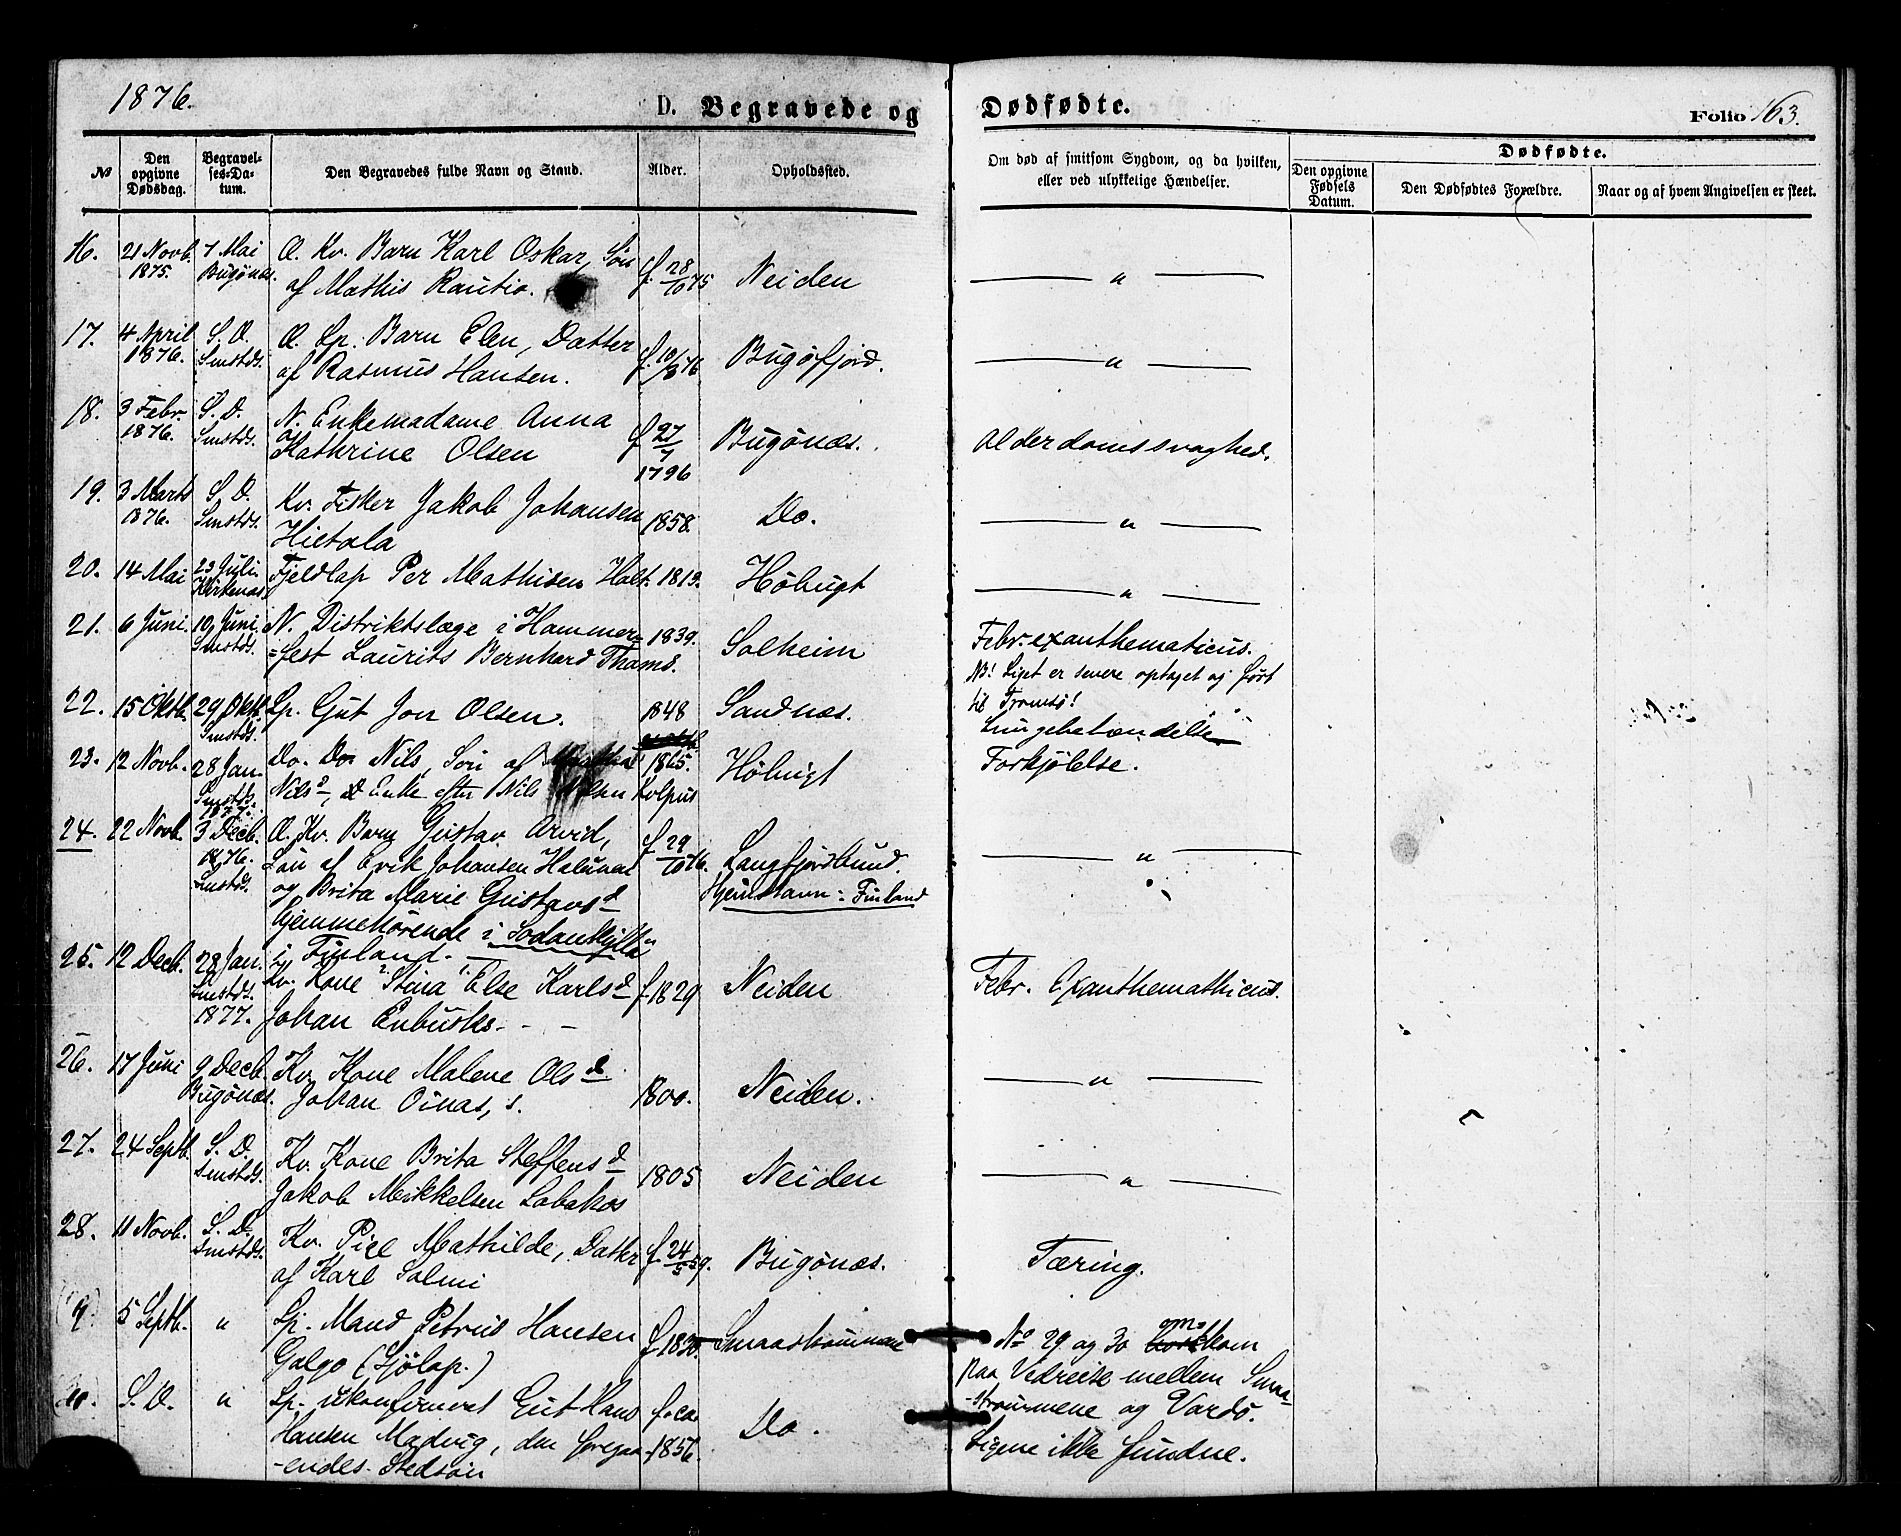 1876.
D. Begravede og Dødfødte.
Folio 163.
№
Den opgivne Dødsdag.
Begravelses-Datum.
Den Begravedes fulde Navn og Stand.
Alder.
Opholdssted.
Om død af smitsom Sygdom, og da hvilken, eller ved ulykkelige Hændelser.
Dødfødte.
Den opgivne Fødsels Datum.
Den Dødfødtes Forældre.
Naar og af hvem Angivelsen er skeet.
16. 21 Novb. 7 Mai Æ. Kv. Barn Karl Oskar, Søn f. 28/10 75 Neiden — " —
1875. Bugønæs. af Mathis Rautio.
17. 4 April S. D. Æ. Lp. Barn Elen, Datter f. 10/3 76 Bugøfjord. — " —
1876. Smstds. af Rasmus Hansen.
18. 3 Febr. S. D. N. Enkemadame Anna f 27/7 Bugønæs. Alderdomssvaghed.
1876. Smstds. Kathrine Olsen 1796
19. 3 Marts S. D. Kv. Fisker Jakob Johansen 1858. Do. — " —
1876. Smstds. Hietala
20. 14 Mai 23 Juli Fjeldlap Per Mathisen Halt. 1813. Høbugt — " —
Kirkenæs.
21. 6 Juni. 10 Juni. N. Distriktslæge i Hammer= 1839. Solheim Febr. exanthematicus.
Smstds. =fest Laurits Bernhard Thams. NB! Liget er senere optaget og ført
til Tromsø!
22. 15 Oktb. 29 Oktb. Lp. Gut Jon Olsen. 1848 Sandnæs. Lungebetændelse
Smstds.
23. 12 Novb. 28 Jan. Do. Do Nils, Søn af 1865. Høbugt Forkjølelse.
Smstds. Nilsd, Enke efter Nils Nilsen Kolpus
1877.
24. 22 Novb. 3 Decb. Æ. Kv. Barn Gustav Arvid, f 29/10 76. Langfjordbund. — " —
1876. Søn af Erik Johansen Halunen Hjemstavn: Finland
Smstds. og Brita Marie Gustavsd
hjemmehørende i Sodankylä
i Finland. —
25. 12 Decb. 28 Jan. Kv. Kone Stina Else Karlsd f 1829 Neiden Febr. Exanthemathicus.
Smstds.
1877. Johan Enbusks - - —
26. 17 Juni 9 Decb. Kv. Kone Malene Olsd 1800. Neiden. — " —
Bugønæs. Johan Oinas, s.
27. 24 Septb. S. D. Kv. Kone Brita Steffensd 1805 Neiden — " —
Smstds. Jakob Mikkelsen Labahos
28. 11 Novb. S. D. Kv. Pige Mathilde, Datter f 24/5 59. Bugønæs. Tæring.
Smstds. af Karl Salmi
5 Septb. " Lp. Mand Petrus Hansen f 1830. Smaastrømmene No 29 og 30 omkom
Galgo (Sjölap.) paa Vedreise mellem Smaa-
S. D. " Lp. ukonfirmeret Gut Hans f. ca. Do. -strømmene og Vardø.
Hansen Madvig, den foregaa- 1856. Ligene ikke fundne.
-endes Stedsøn